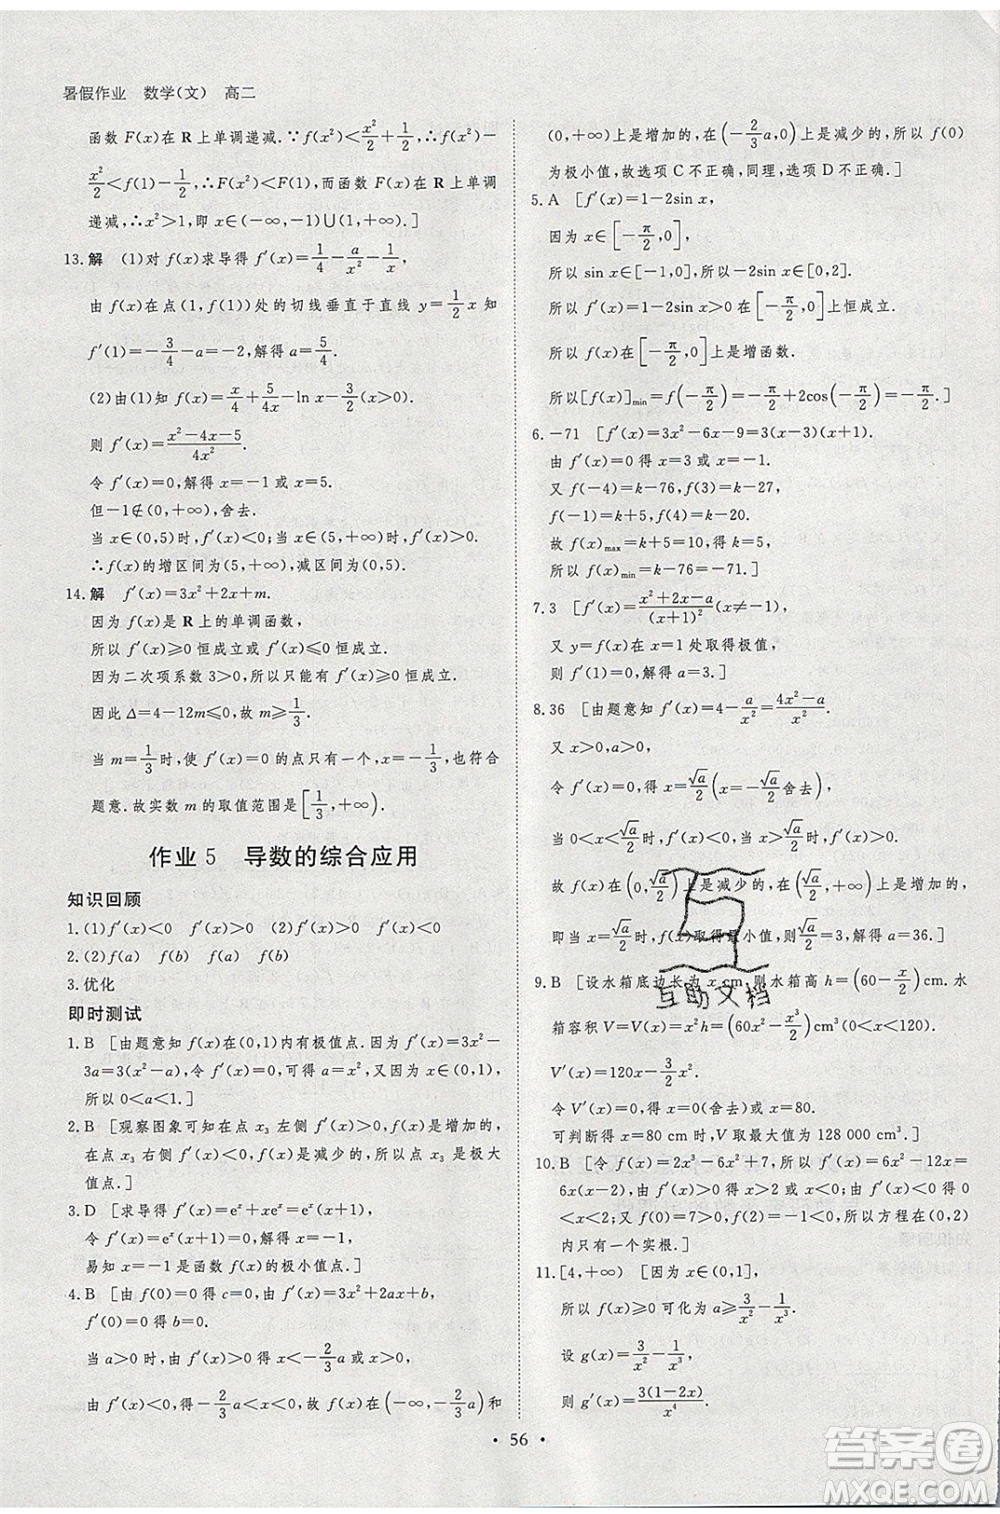 暑假作业 数学(文) 高二
函数 F(x) 在 R 上单调递减.∵f(x²)<x²/2+1/2,∴f(x²)−
x²/2<f(1)−1/2,∴F(x²)<F(1),而函数 F(x) 在 R 上单调
递减,∴x²>1,即 x∈(−∞,−1)∪(1,+∞).]
13.解 (1)对 f(x)求导得 f′(x)=1/4−a/x²−1/x,
由 f(x)在点(1,f(1))处的切线垂直于直线 y=1/2x 知
f′(1)=−3/4−a=−2,解得 a=5/4.
(2)由(1)知 f(x)=x/4+5/4x−ln x−3/2,
则 f′(x)=(x²−4x−5)/4x².
令 f′(x)=0,解得 x=−1 或 x=5.
但−1∉(0,+∞),舍去.
当 x∈(0,5)时,f′(x)<0;当 x∈(5,+∞)时,f′(x)>0.
∴f(x)的增区间为(5,+∞),减区间为(0,5).
14.解 f′(x)=3x²+2x+m.
因为 f(x)是 R 上的单调函数,
所以 f′(x)⩾0 恒成立或 f′(x)⩽0 恒成立.
因为二次项系数 3>0,所以只能有 f′(x)⩾0 恒成立.
因此 Δ=4−12m⩽0,故 m⩾1/3.
当 m=1/3时,使 f′(x)=0 的点只有一个 x=−1/3,也符合
题意.故实数 m 的取值范围是[1/3,+∞).
作业 5 导数的综合应用
知识回顾
1.(1)f′(x)<0 f′(x)>0 (2)f′(x)>0 f′(x)<0
2.(2)f(a) f(b) f(a) f(b)
3.优化
即时测试
1.B [由题意知 f(x)在(0,1)内有极值点.又 f′(x)=3x²−
3a=3(x²−a),令 f′(x)=0,可得 a=x²,又 x∈(0,1),
所以 0<a<1.]
2.B [观察图象可知在点 x₃ 左侧 f′(x)>0,f(x)是增加的,
在点 x₃ 右侧 f′(x)<0,f(x)是减少的,所以点 x₃ 是极大
值点.]
3.D [求导得 f′(x)=eˣ+xeˣ=eˣ(x+1),
令 f′(x)=eˣ(x+1)=0,解得 x=−1,
易知 x=−1 是函数 f(x)的极小值点.]
4.B [由 f(0)=0 得 c=0,f′(x)=3x²+2ax+b.
由 f′(0)=0 得 b=0,故 f′(x)=x(3x+2a).
当 a>0 时,由 f′(x)>0 得 x<−2/3a 或 x>0,
由 f′(x)<0,得−2/3a<x<0,故 f(x)在(−∞,−2/3a)和
(0,+∞)上是增加的,在(−2/3a,0)上是减少的,所以 f(0)
为极小值,故选项 C 不正确,同理,选项 D 不正确.]
5.A [f′(x)=1−2sin x,
因为 x∈[−π/2,0],
所以 sin x∈[−1,0],所以−2sin x∈[0,2].
所以 f′(x)=1−2sin x>0 在[−π/2,0]上恒成立.
所以 f(x)在[−π/2,0]上是增函数.
所以[f(x)]min=f(−π/2)=−π/2+2cos(−π/2)=−π/2.]
6.−71 [f′(x)=3x²−6x−9=3(x−3)(x+1).
由 f′(x)=0 得 x=3 或 x=−1.
又 f(−4)=k−76,f(3)=k−27,
f(−1)=k+5,f(4)=k−20.
故 f(x)max=k+5=10,得 k=5,
f(x)min=k−76=−71.]
7.3 [f′(x)=(x²+2x−a)/(x+1)²(x≠−1),
又 y=f(x)在 x=1 处取得极值,
则 f′(1)=0,解得 a=3.]
8.36 [由题意知 f′(x)=4−a/x²=(4x²−a)/x².
又 x>0,a>0,
令 f′(x)=0,得 x=√a/2(x=−√a/2舍去),
当 0<x<√a/2时,f′(x)<0;当 x>√a/2时,f′(x)>0.
故 f(x)在(0,√a/2)上是减少的,在(√a/2,+∞)上是增加的,
即当 x=√a/2时,f(x)取得最小值,则√a/2=3,解得 a=36.]
9.B [设水箱底边长为 x cm,则水箱高 h=(60−x/2)cm.水
箱容积 V=V(x)=x²h=(60x²−x³/2)cm³(0<x<120).
V′(x)=120x−3/2x².
令 V′(x)=0,得 x=0(舍去)或 x=80.
可判断得 x=80 cm 时,V 取最大值为 128 000 cm³.]
10.B [令 f(x)=2x³−6x²+7,所以 f′(x)=6x²−12x=
6x(x−2),由 f′(x)>0 得 x>2 或 x<0;由 f′(x)<0 得 0
<x<2,又 f(0)=7>0,f(2)=−1<0,所以方程在(0,2)
内有一个实根.]
11.[4,+∞) [因为 x∈(0,1],
所以 f(x)⩾0 可化为 a⩾3/x²−1/x³.
设 g(x)=3/x²−1/x³,
则 g′(x)=3(1−2x)/x⁴.
• 56 •
互助文档
答案卷
MXQE.COM